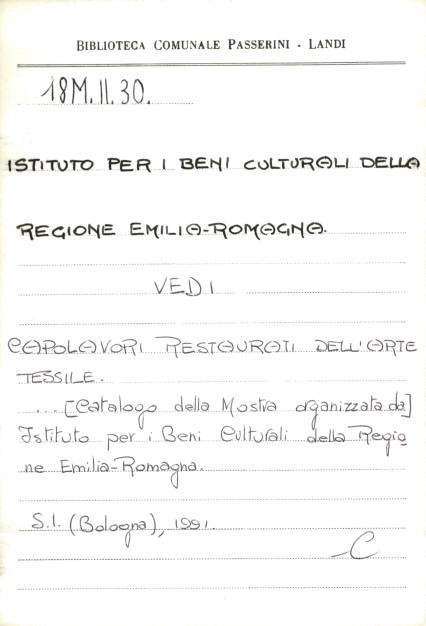 BIBLIOTECA COMUNALE PASSERINI - LANDI
18M.II.30.
ISTITUTO PER I BENI CULTURALI DELLA
REGIONE EMILIA-ROMAGNA.
VEDI
CAPOLAVORI RESTAURATI DELL'ARTE
TESSILE.
... [Catalogo della Mostra organizzata da]
Istituto per i Beni Culturali della Regio
ne Emilia-Romagna.
S.l. (Bologna), 1991.
C